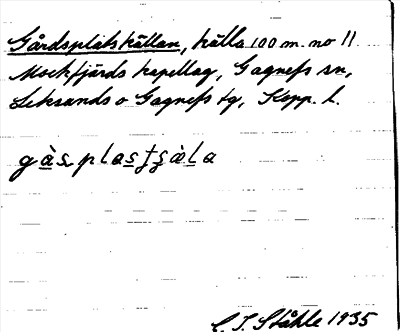 Gårdsplatskällan, källa 100 m. no 11
Mockfjärds kapellag, Gagnefs sn,
Leksands o Gagnefs tg, Kopp. l.
C. I. Ståhle 1935